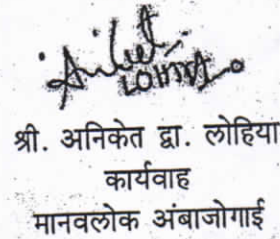 श्री. अनिकेत द्वा. लोहिया
कार्यवाह
मानवलोक अंबाजोगाई